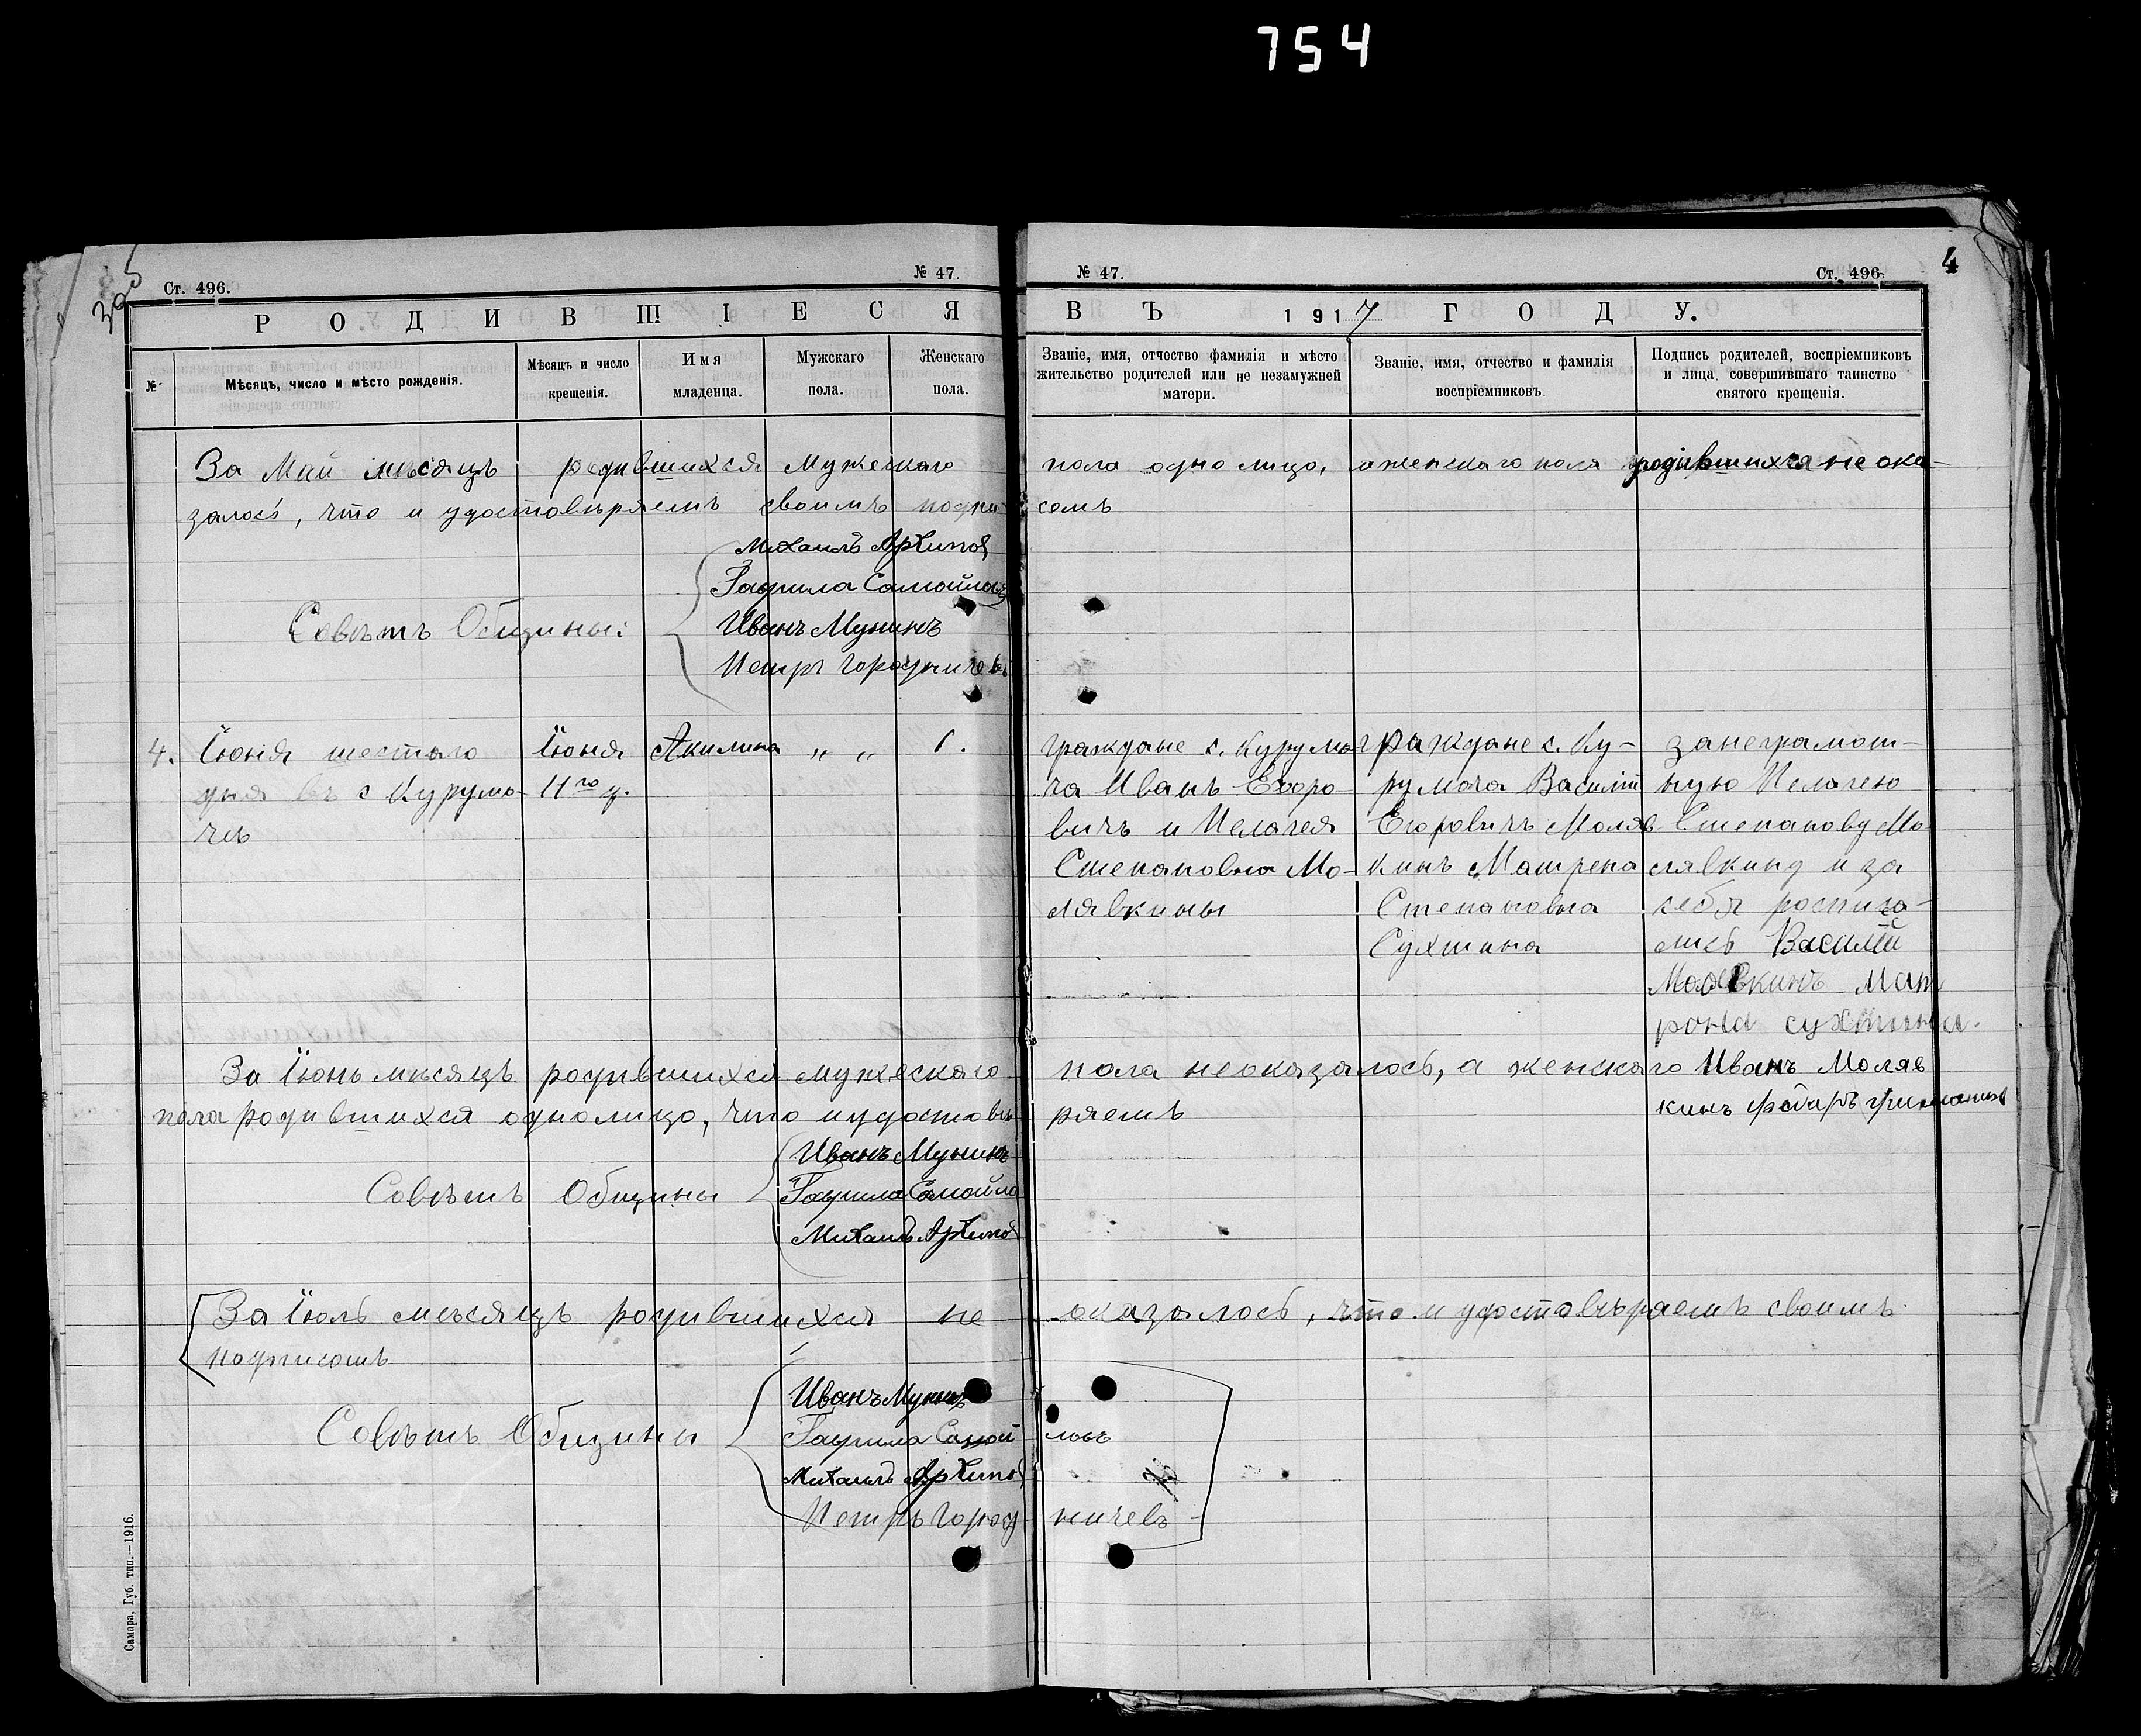 754
4
Ст. 496.
№ 47.
№ 47.
Ст. 496.
РОДИВШІЕСЯ ВЪ 1917 ГОДУ.
№
Мѣсяцъ, число и мѣсто рожденія.
Мѣсяцъ и число крещенія.
Имя младенца.
Мужскаго пола.
Женскаго пола.
Званіе, имя, отчество фамилія и мѣсто
жительство родителей или не незамужней
матери.
Званіе, имя, отчество и фамилія
воспріемниковъ.
Подпись родителей, воспріемниковъ
и лица, совершившаго таинство
святого крещенія.
За Май мѣсяцъ родившихся мужескаго пола одно лицо, а женскаго пола родившихся не ока-
залось, что и удостовѣряемъ своимъ подпи семъ
Михаилъ Архипов
Гаврила Самойловъ
Совѣтъ Общины:
Иванъ Мунинъ
Петръ Городничевъ
4.
Іюня шестаго
дня въ с Курумо-
чѣ
Іюня
11го д.
Акилина
„ „
1.
граждане с. Курумо-
ча Иванъ Егоро-
вичъ и Пелагея
Степановна Мо-
лявкины
граждане с. Ку-
румоча Василій
Егоровичъ Моляв-
кинъ Матрена
Степановна
Сухинина
За неграмот-
ную Пелагею
Степанову Мо
лявкину и за
себя росписа-
лись Василій
Молявкинъ Мат
рона
Иванъ Моляв
кинъ
За Іюнь мѣсяцъ родившихся мужескаго пола неоказалось, а женскаго
пола родившихся однолицо, что и удостовѣ ряемъ
Иванъ Мунинъ
Совѣтъ Общины
Гаврила Самойло
Михаилъ Архипов
За Іюль мѣсяцъ родившихся не оказалось, что и удостовѣряемъ своимъ
подписомъ
Иванъ Мунинъ
Совѣтъ Общины
Гаврила Самой ловъ
Михаилъ Архипов
Петръ Город ничевъ
Самара, Губ. тип.—1916.